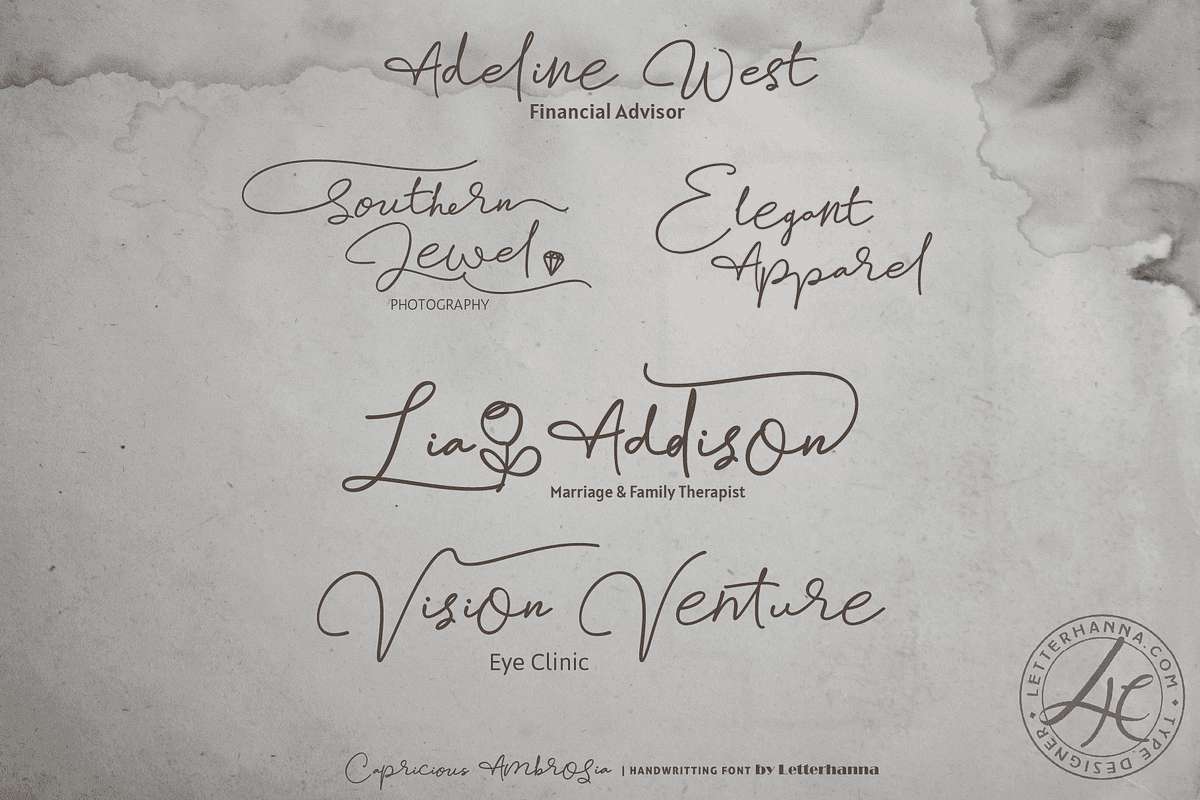 Adeline West
Financial Advisor
Southern
Jewel
PHOTOGRAPHY
Elegant
Apparel
Lia Addison
Marriage & Family Therapist
Vision Venture
Eye Clinic
LETTERHANNA.COM
LH
TYPE DESIGNER
Capricious Ambrosia | HANDWRITTING FONT by Letterhanna